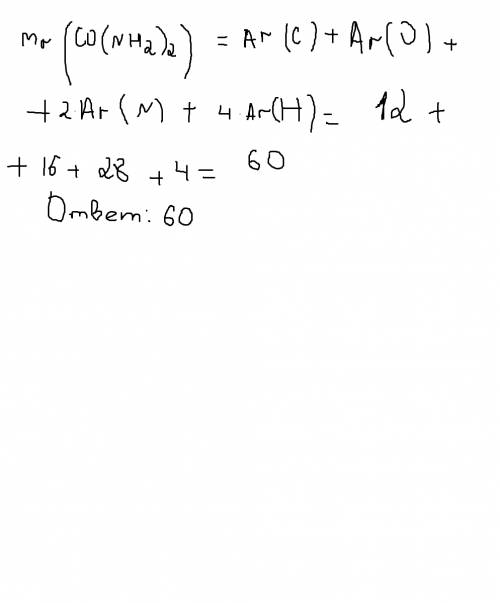 Mr (CO(NH₂)₂) = Ar(C) + Ar(O) +
+ 2 Ar(N) + 4 Ar(H) = 12 +
+ 16 + 28 + 4 = 60
Ответ: 60